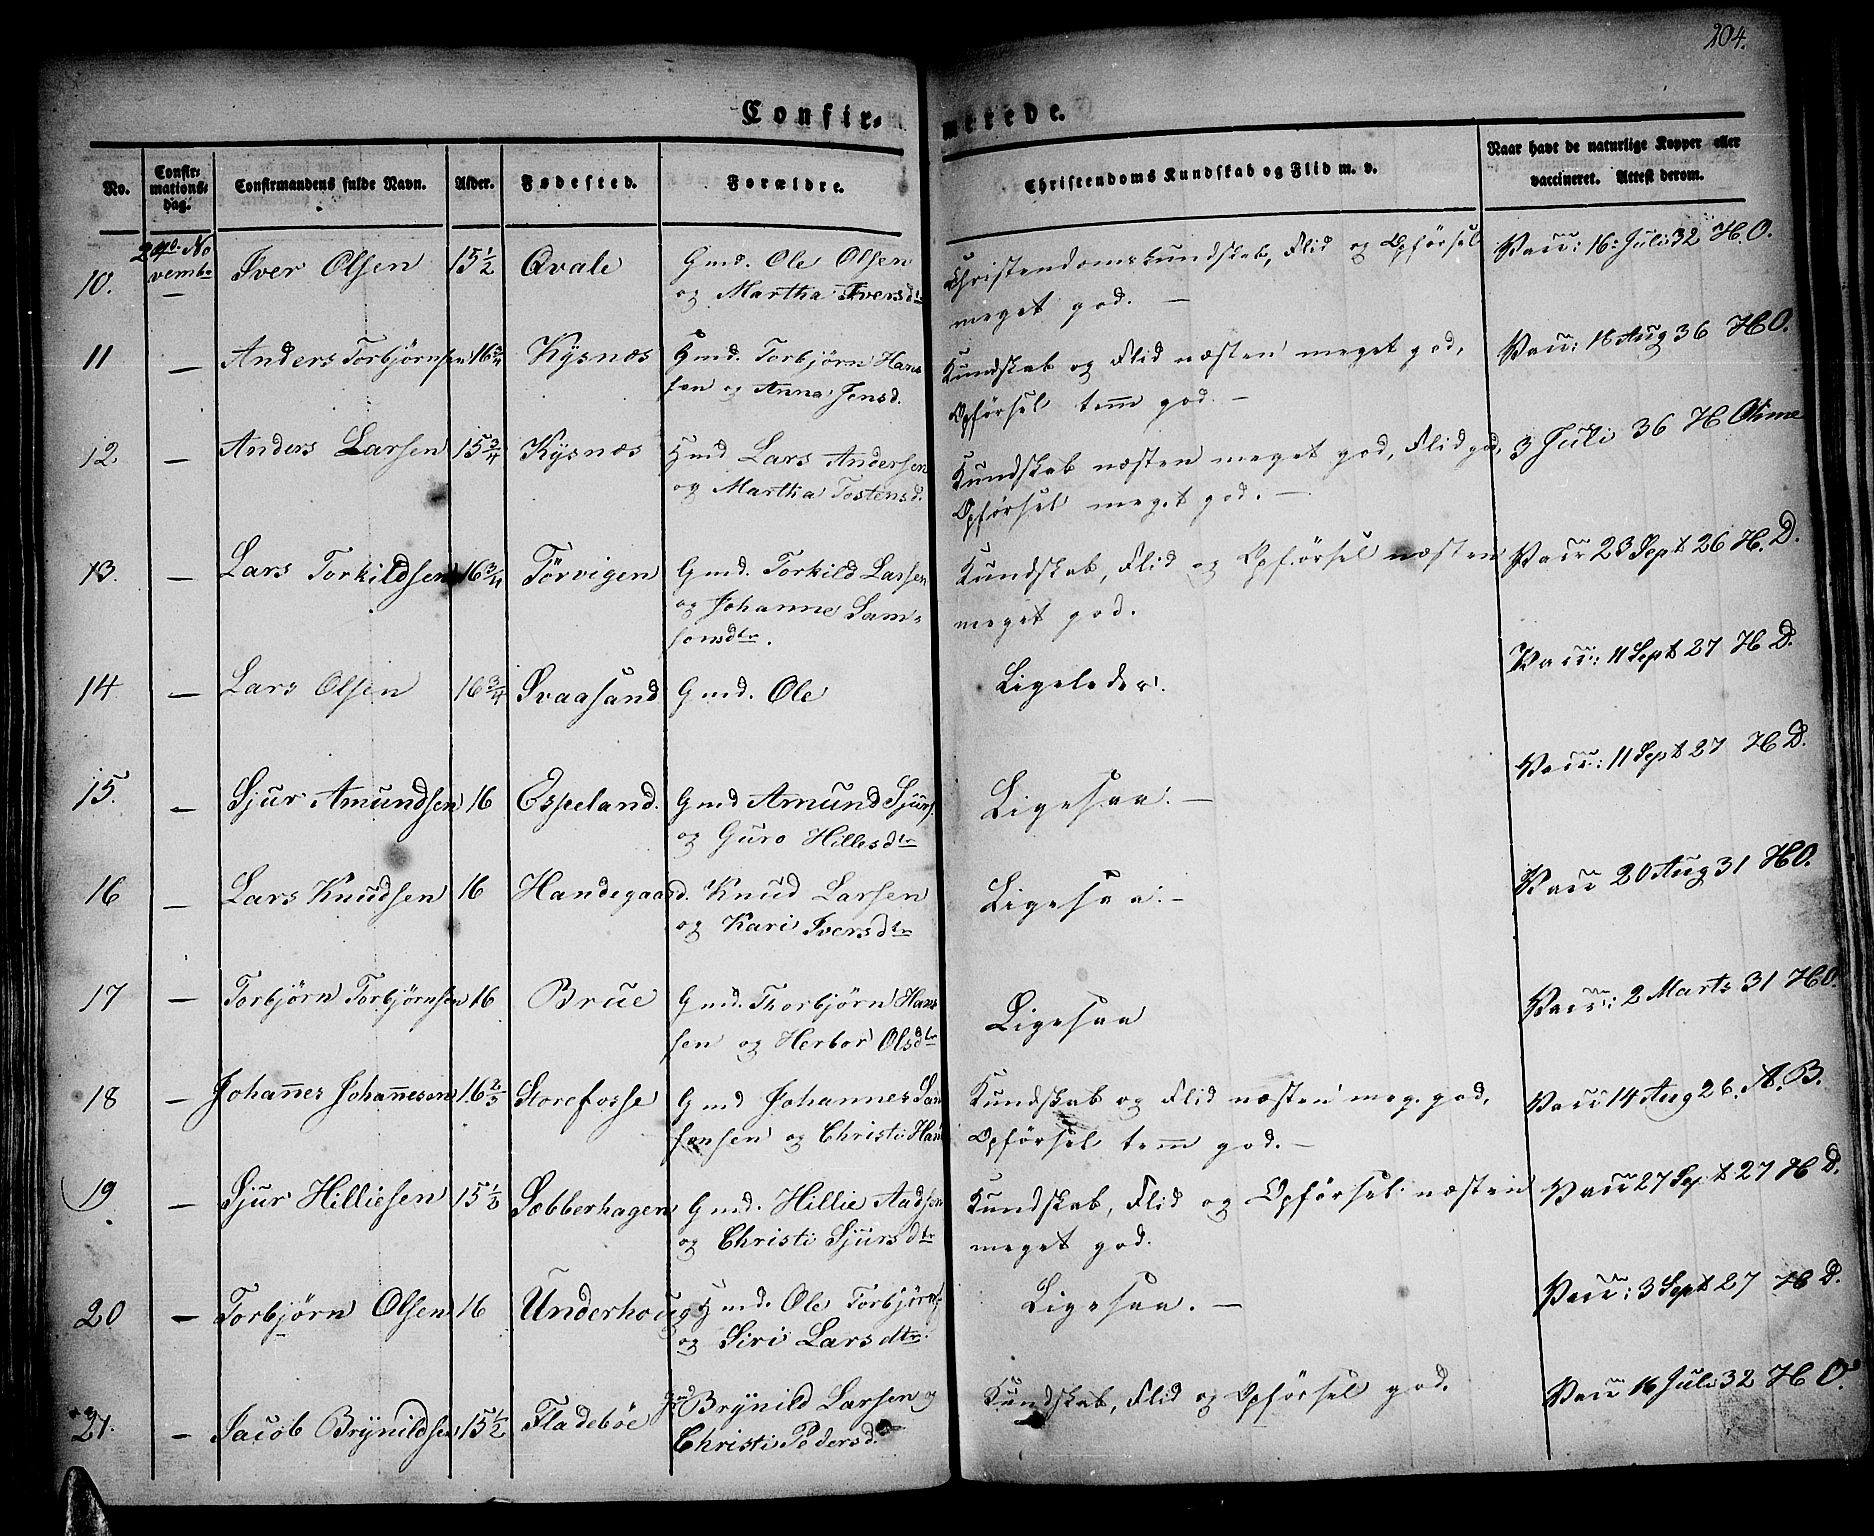 204.
Confir-
merede.
No.
Confir-
mations-
dag.
Confirmandens fulde Navn.
Alder.
Fødested.
Forældre.
Christendoms Kundskab og Flid m. v.
Naar havt de naturlige Kopper eller
vaccineret. Attest derom.
10. 24de No
vembr – Iver Olsen 15 1/2 Qvale Gmd. Ole Olsen
og Martha Iversdtr
Christendomskundskab, Flid og Opførsel
meget god. –
Vacc: 16: Juli 32 H. O.
11 – Anders Torbjörnsen 16 3/4 Kysnæs Hmd. Torbjörn Han
sen og Anna Jensd.
Kundskab og Flid næsten meget god,
Opførsel tem god. –
Vacc: 16 Aug 36 H O.
12. – Anders Larsen 15 3/4 Kysnæs Hmd Lars Andersen
og Martha Tostensd.
Kundskab næsten meget god, Flid god,
Opførsel meget god. –
3 Juli 36 H Olsine
13. – Lars Torkildsen 16 3/4 Törvigen Gmd. Torkild Larsen
og Johanne Sam-
sonsdtr.
Kundskab, Flid og Opførsel næsten
meget god.
Vacc 23 Sept 26 H. D.
14 – Lars Olsen 16 3/4 Svaasand Gmd. Ole
Ligeledes.
Vacc: 11 Sept 27 H D.
15. – Sjur Amundsen 16 Espeland. Gmd Amund Sjurs.
og Guro Hillesdtr
Ligesaa. –
Vacc: 11 Sept 27 H D.
16 – Lars Knudsen 16 Handegaard. Knud Larsen
og Kari Iversdtr
Ligesaa. –
Vacc 20 Aug 31 H O.
17 – Torbjörn Torbjörnsen 16 Brue Gmd. Thorbjörn Han
sen og Herbor Olsdtr
Ligesaa
Vacc: 2 Marts 31 H O.
18 – Johañes Johañesen 16 2/3 Storefosse Gmd Johannes Sam
sonsen og Christi Han
Kundskab og Flid næsten meg. god,
Opførsel tem god. –
Vacc 14 Aug 26. A. B.
19 – Sjur Hilliesen 15 1/2 Sæbberhagen Gmd. Hillie Aadsen
og Christi Sjursdtr
Kundskab, Flid og Opførsel næsten
meget god.
Vacc 27 Sept 27 H D.
20 – Torbjörn Olsen 16 Underhoug Hmd. Ole Torbjörns
og Siri Larsdtr.
Ligesaa. –
Vacc: 3 Sept 27 H D.
21. – Jacob Brynildsen 15 1/2 Fladeböe Brynild Larsen og
Christi Pedersd.
Kundskab, Flid og Opførsel god.
Vacc 16 Juli 32 H O.